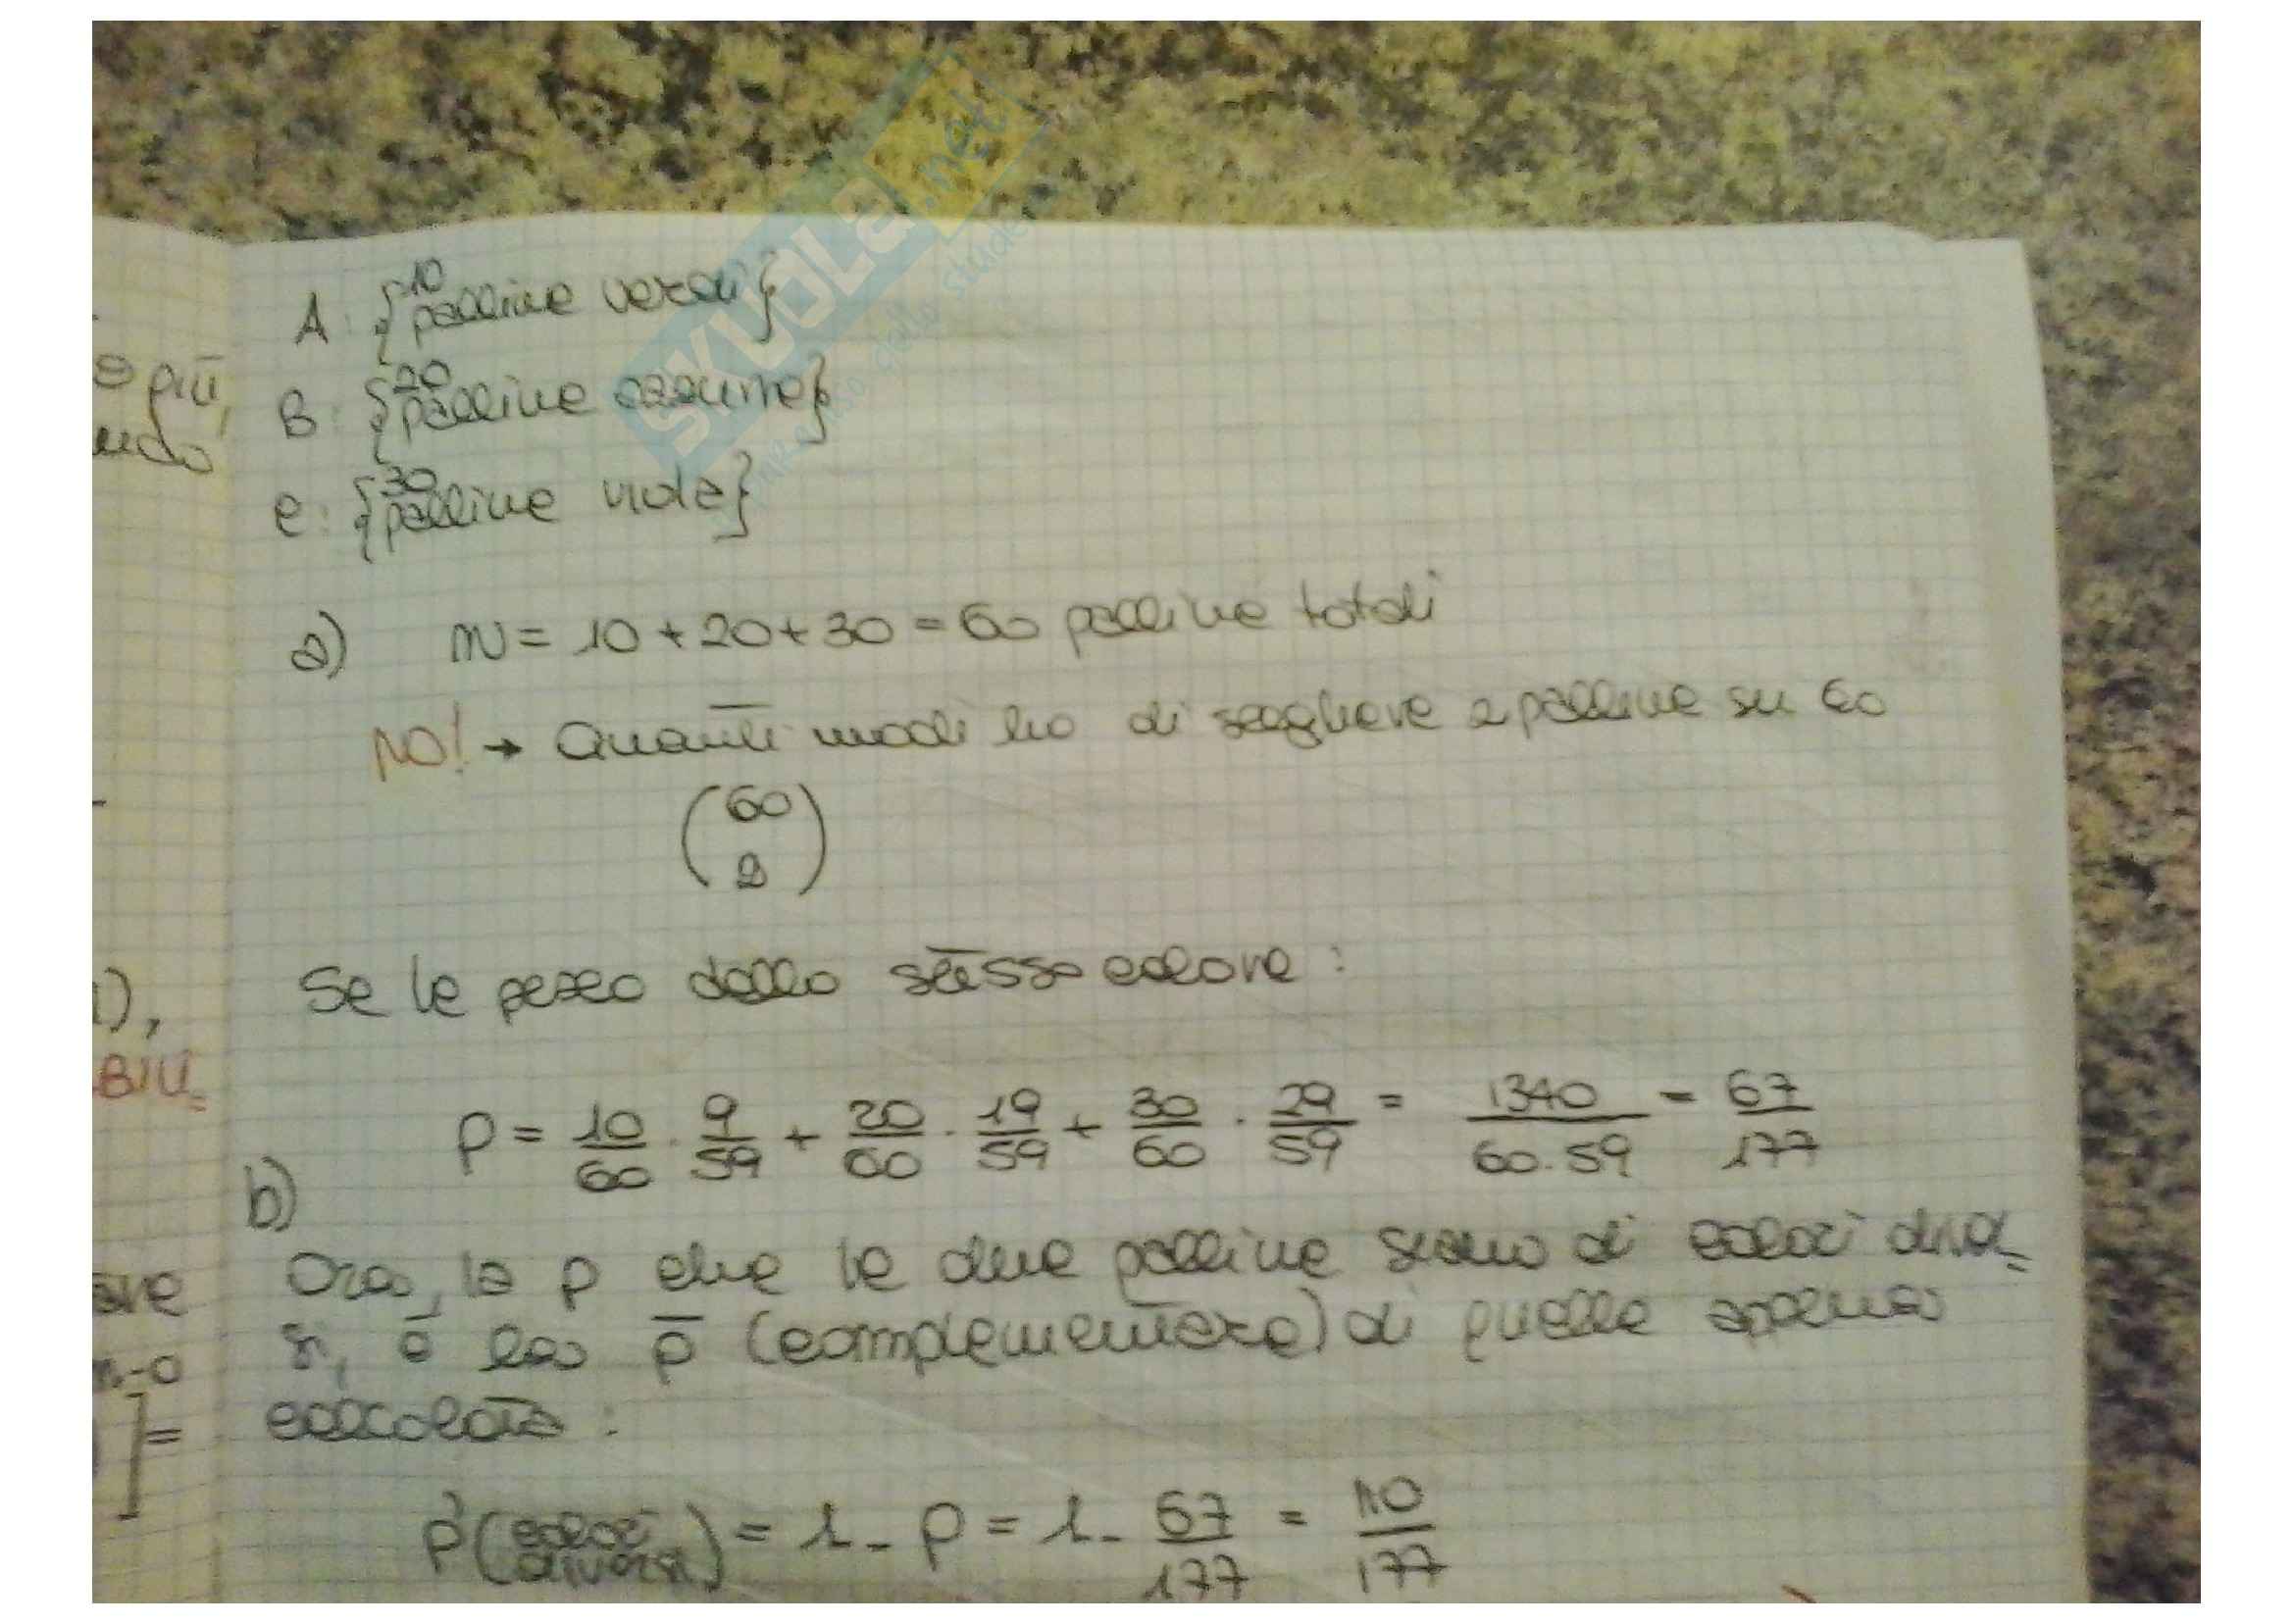 A: {10 palline verdi}
B: {20 palline azzurre}
C: {30 palline viola}
a) N = 10 + 20 + 30 = 60 palline totali
NO! → Quanti modi ho di scegliere 2 palline su 60
(60 2)
Se le pesco dello stesso colore:
p = 10/60 · 9/59 + 20/60 · 19/59 + 30/60 · 29/59 = 1340/60·59 = 67/177
b)
Ora, la p che le due palline siano di colori diver=
si, è la p̄ (complementare) di quella appena
calcolata:
p(colori diversi) = 1 - p = 1 - 67/177 = 110/177
e più,
ndo
1),
BIU=
are
n-0
]=
SKUOLA.net